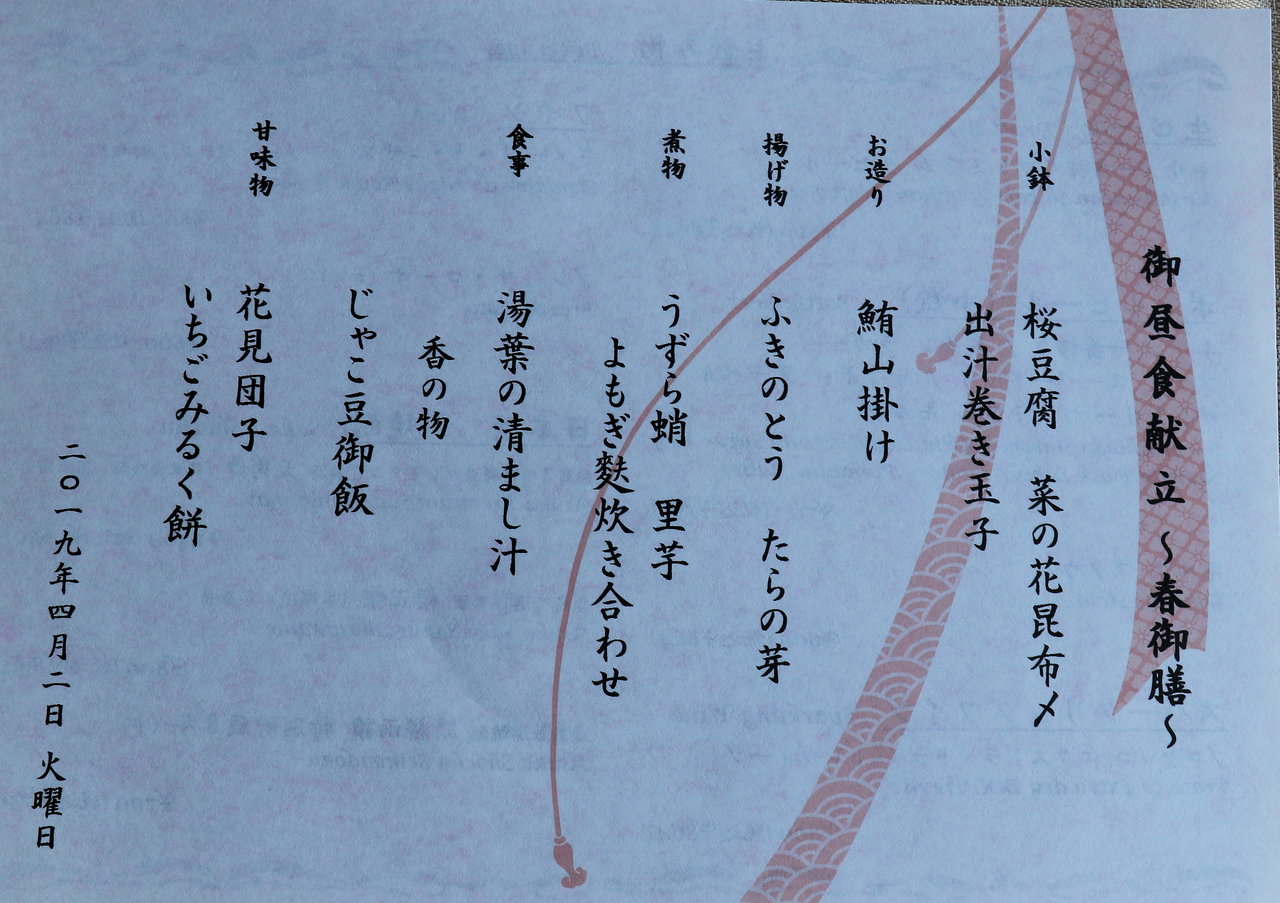 御昼食献立 ～春御膳～
小鉢 桜豆腐 菜の花昆布〆
出汁巻き玉子
お造り 鮪山掛け
揚げ物 ふきのとう たらの芽
煮物 うずら蛸 里芋
よもぎ麩炊き合わせ
食事 湯葉の清まし汁
香の物
じゃこ豆御飯
甘味物 花見団子
いちごみるく餅
二〇一九年四月二日 火曜日